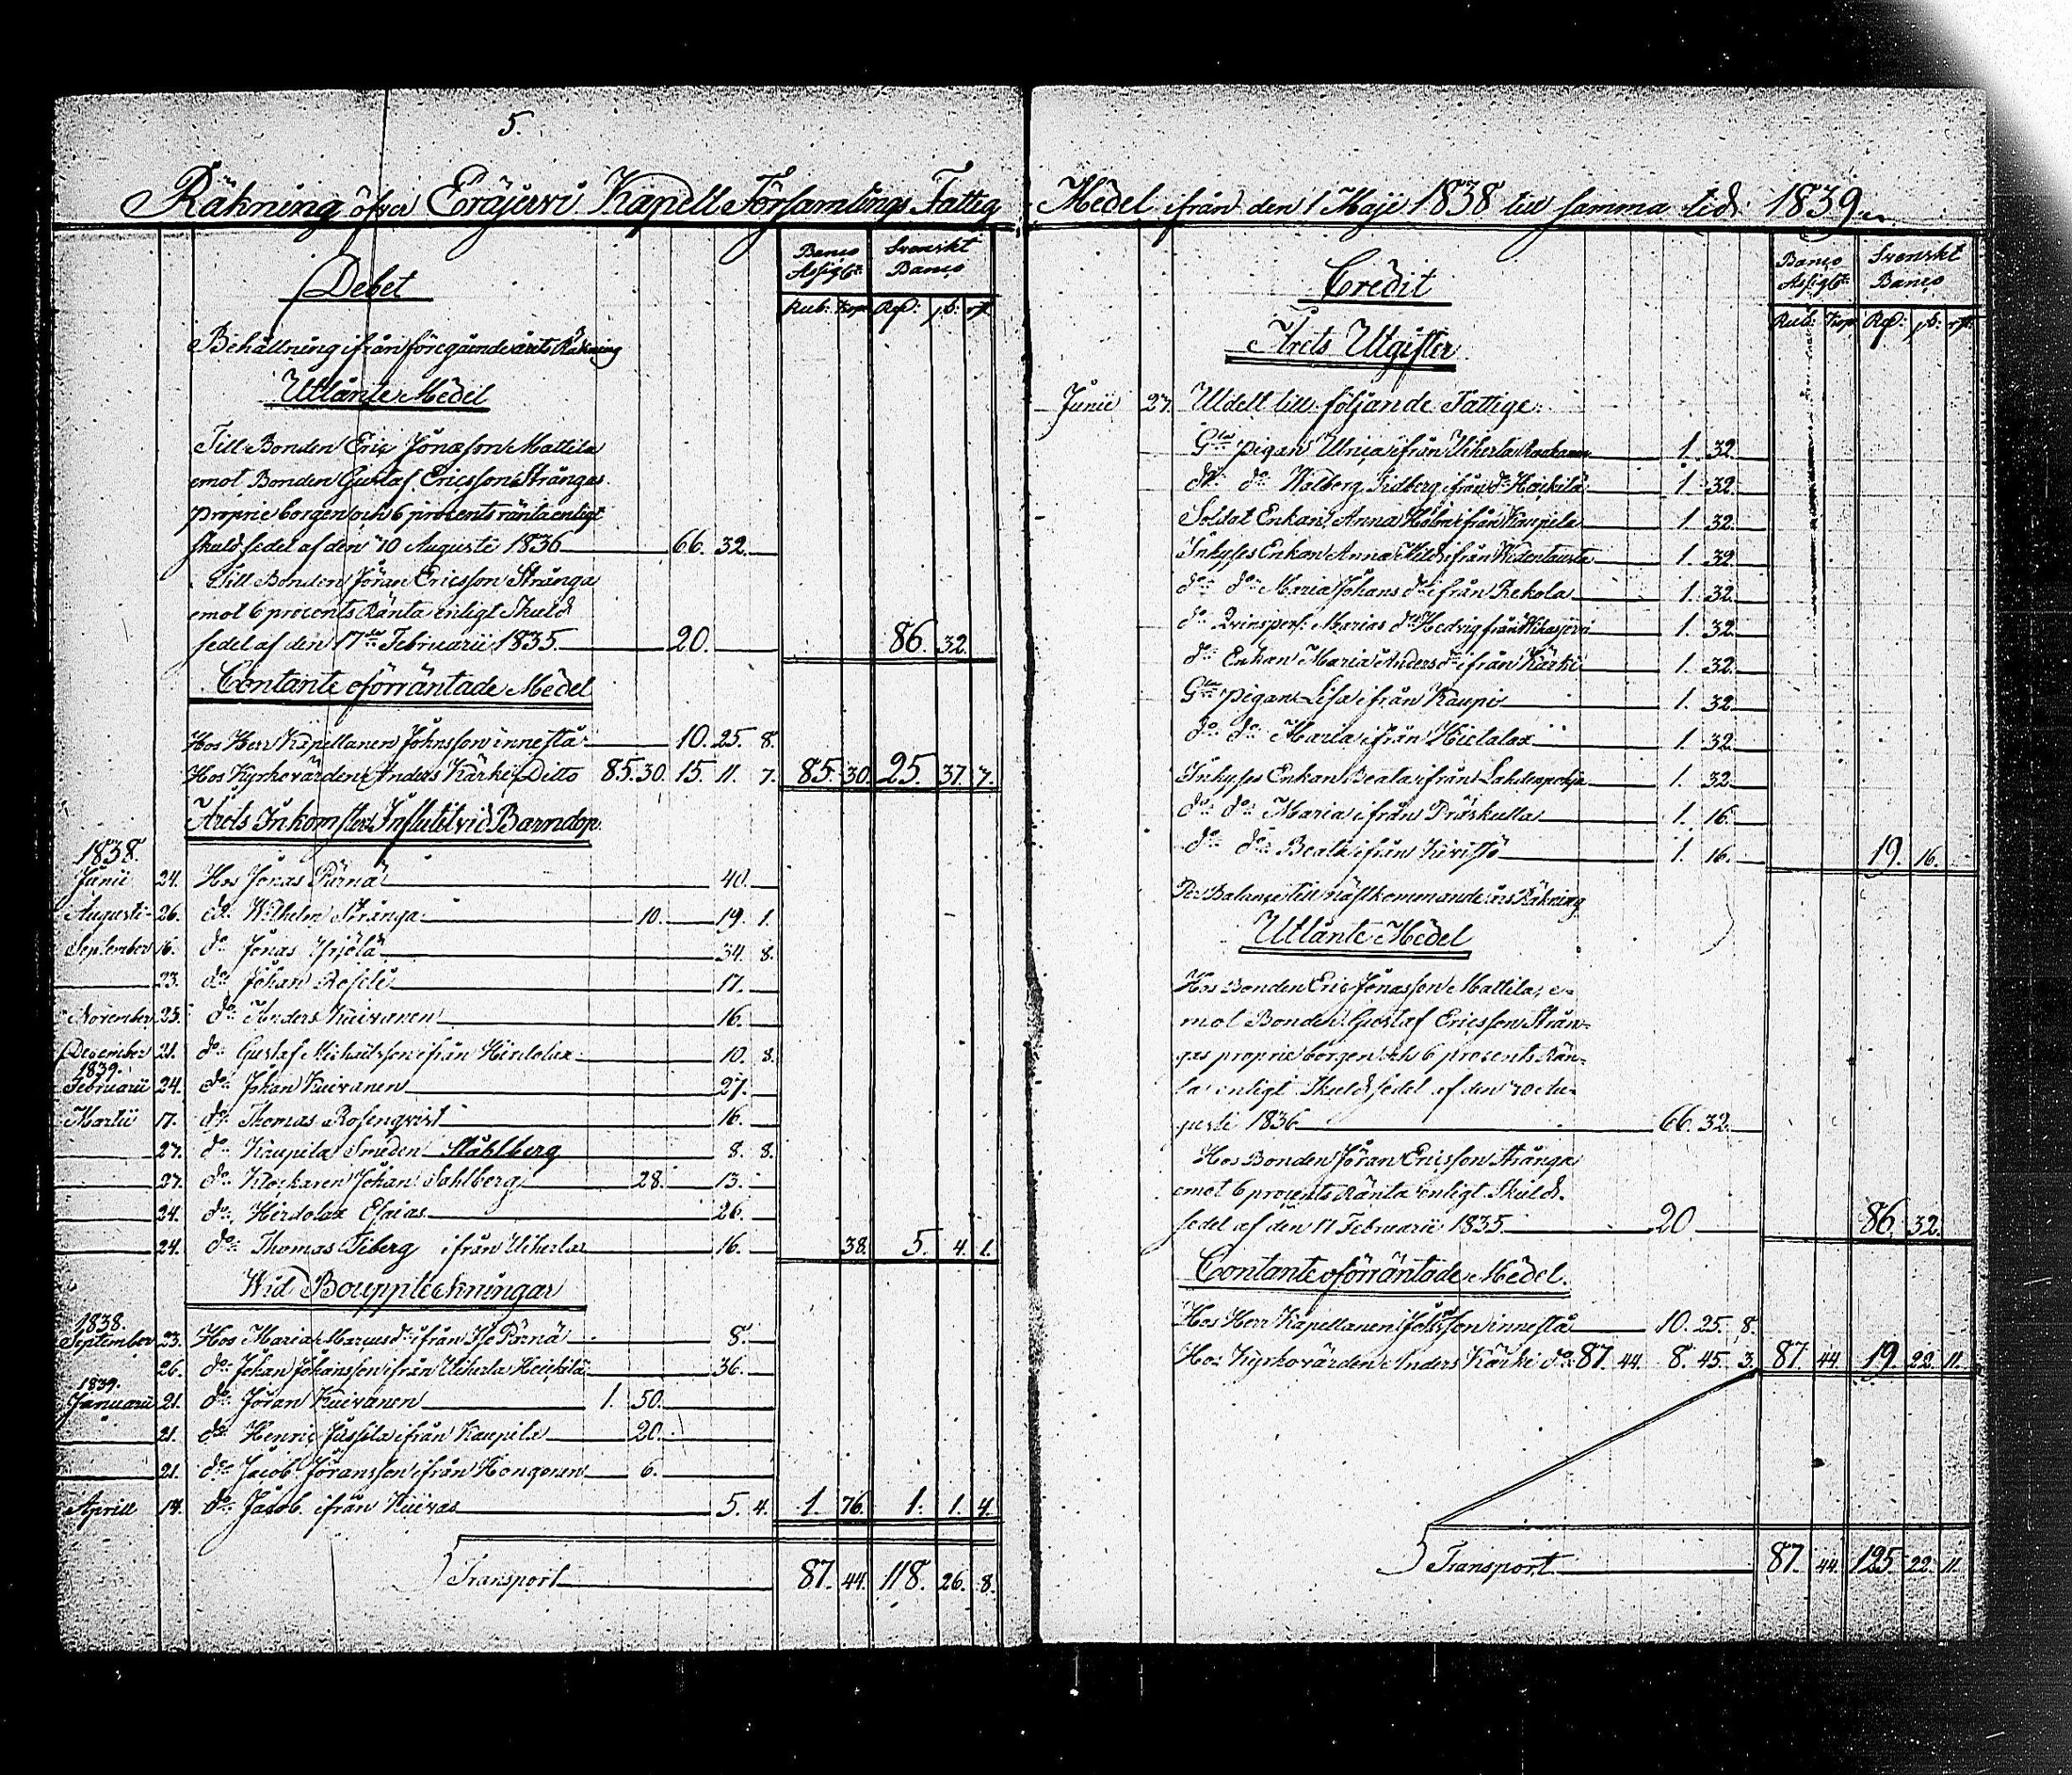 5.
Räkning öfver Eräjerwi Kapell Församlings Fattig
Debet
Banco Assigb:
Svenskt Banco
Rub: Kop: Rd: sk: rst:
Behållning ifrån föregående årets Räkning
Utlånte Medel
Till Bonden Eric Jonasson Mattila
emot Bonden Gustaf Ericsson Strångas
proprie borgen och 6 procents ränta enligt
skuldsedel af den 10 Augusti 1836 66. 32.
Till Bonden Jöran Ericsson Strånga
emot 6 procents Ränta enligt Skuld
sedel af den 17de Februarii 1835 20. 86. 32.
Contante oförräntade Medel
Hos Herr Kapellanen Johnsson innestå 10. 25. 8.
Hos Kyrkovärden Anders Kärki Ditto 85. 30. 15. 11. 7. 85. 30. 25. 37. 7.
Årets Inkomster Influtit vid Barndop
1838.
Junii 24. Hos Jonas Pärnä 40.
Augusti 26. do Wilhelm Strånga 10. 19. 1.
September 16. do Jonas Yrjölä 34. 8.
23. do Johan 17.
November 25. do Anders Kuivanen 16.
December 21. do Gustaf Michailsson ifrån Hirdolax 10. 8.
1839.
Februarii 24. do Johan Kuivanen 27.
Martii 17. do Thomas Rosenqvist 16.
27. do Kaupila Smeden Ståhlberg 8. 8.
27. do Klockaren Johan Sahlberg 28. 13.
24. do Hirdolax Esaias 26.
24. do Thomas Fiberg ifrån Uiherla 16. 38. 5. 4. 1.
Wid Bouppteckningar
1838.
September 23. Hos Maria Marcusdr ifrån Pärnä 8.
26. do Johan Johansson ifrån Uiherla Heickilä 36.
1839.
Januarii 21. do Jöran Kuivanen 1. 50.
21. do Henric Jussila ifrån Kaupila 20.
21. do Jacob Göransson ifrån Hongonen 6.
Aprill 14. do Jacob ifrån Kuivas 5. 4. 1. 76. 1. 1. 4.
Transport 87. 44. 118. 26. 8.
Medel ifrån den 1 Maji 1838 till samma tid 1839
Credit
Banco Assigb:
Svenskt Banco
Rub: Kop: Rd: sk: rst:
Årets Utgifter
Junii 27. Utdelt till följande Fattige:
Gla pigan Ulrica ifrån Uiherla 1. 32.
do do Walberg Fidberg ifrån do Heickilä 1. 32.
Soldat Enkan Anna Holm ifrån Kaupila 1. 32.
Inhyses Enkan Anna Mild ifrån 1. 32.
do do Maria Johansdr ifrån Rekola 1. 32.
do Qvinspers: Marias dr Hedvig från 1. 32.
do Enkan Maria Andersdr ifrån Kärki 1. 32.
Gla pigan Lisa ifrån Kaupi 1. 32.
do do Maria ifrån Hietalax 1. 32.
Inhyses Enkan Beata ifrån Lahdenpohja 1. 32.
do do Maria ifrån Präskulla 1. 16.
do do Beata ifrån 1. 16. 19. 16.
Per Balance till nästkommande års Räkning
Utlånte Medel
Hos Bonden Eric Jonasson Mattila, e-
mot Bonden Gustaf Ericsson Strån-
gas proprie borgen och 6 procents Rän-
ta enligt Skuldsedel af den 10 Au-
gusti 1836 66. 32.
Hos Bonden Jöran Ericsson Strånga
emot 6 procents Ränta enligt Skuld-
sedel af den 17 Februarii 1835 20. 86. 32.
Contante oförräntade Medel
Hos Herr Kapellanen Johnsson innestå 10. 25. 8.
Hos Kyrkovärden Anders Kärki do 87. 44. 8. 45. 3. 87. 44. 19. 22. 11.
Transport 87. 44. 125. 22. 11.